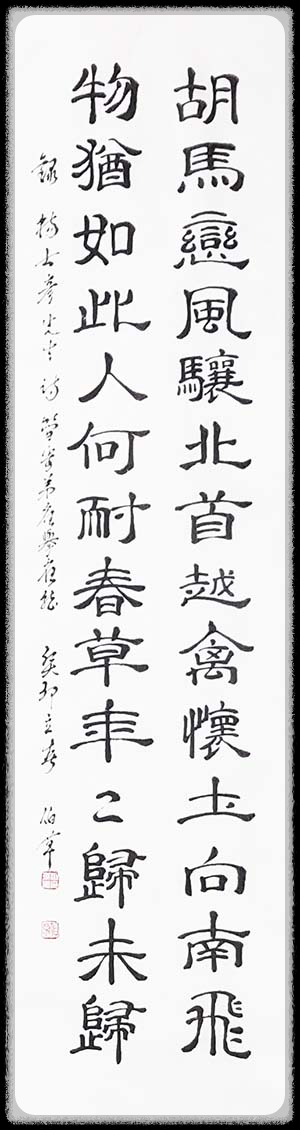 胡馬戀風驤北首越禽懷土向南飛
物猶如此人何耐春草年〻歸未歸
錄 士彥先生詩 癸卯立春